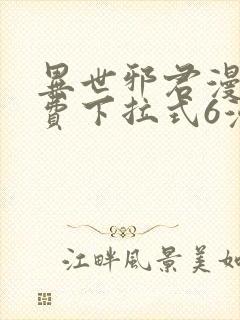 異世邪君漫
費下拉式6漫
江畔風景美如